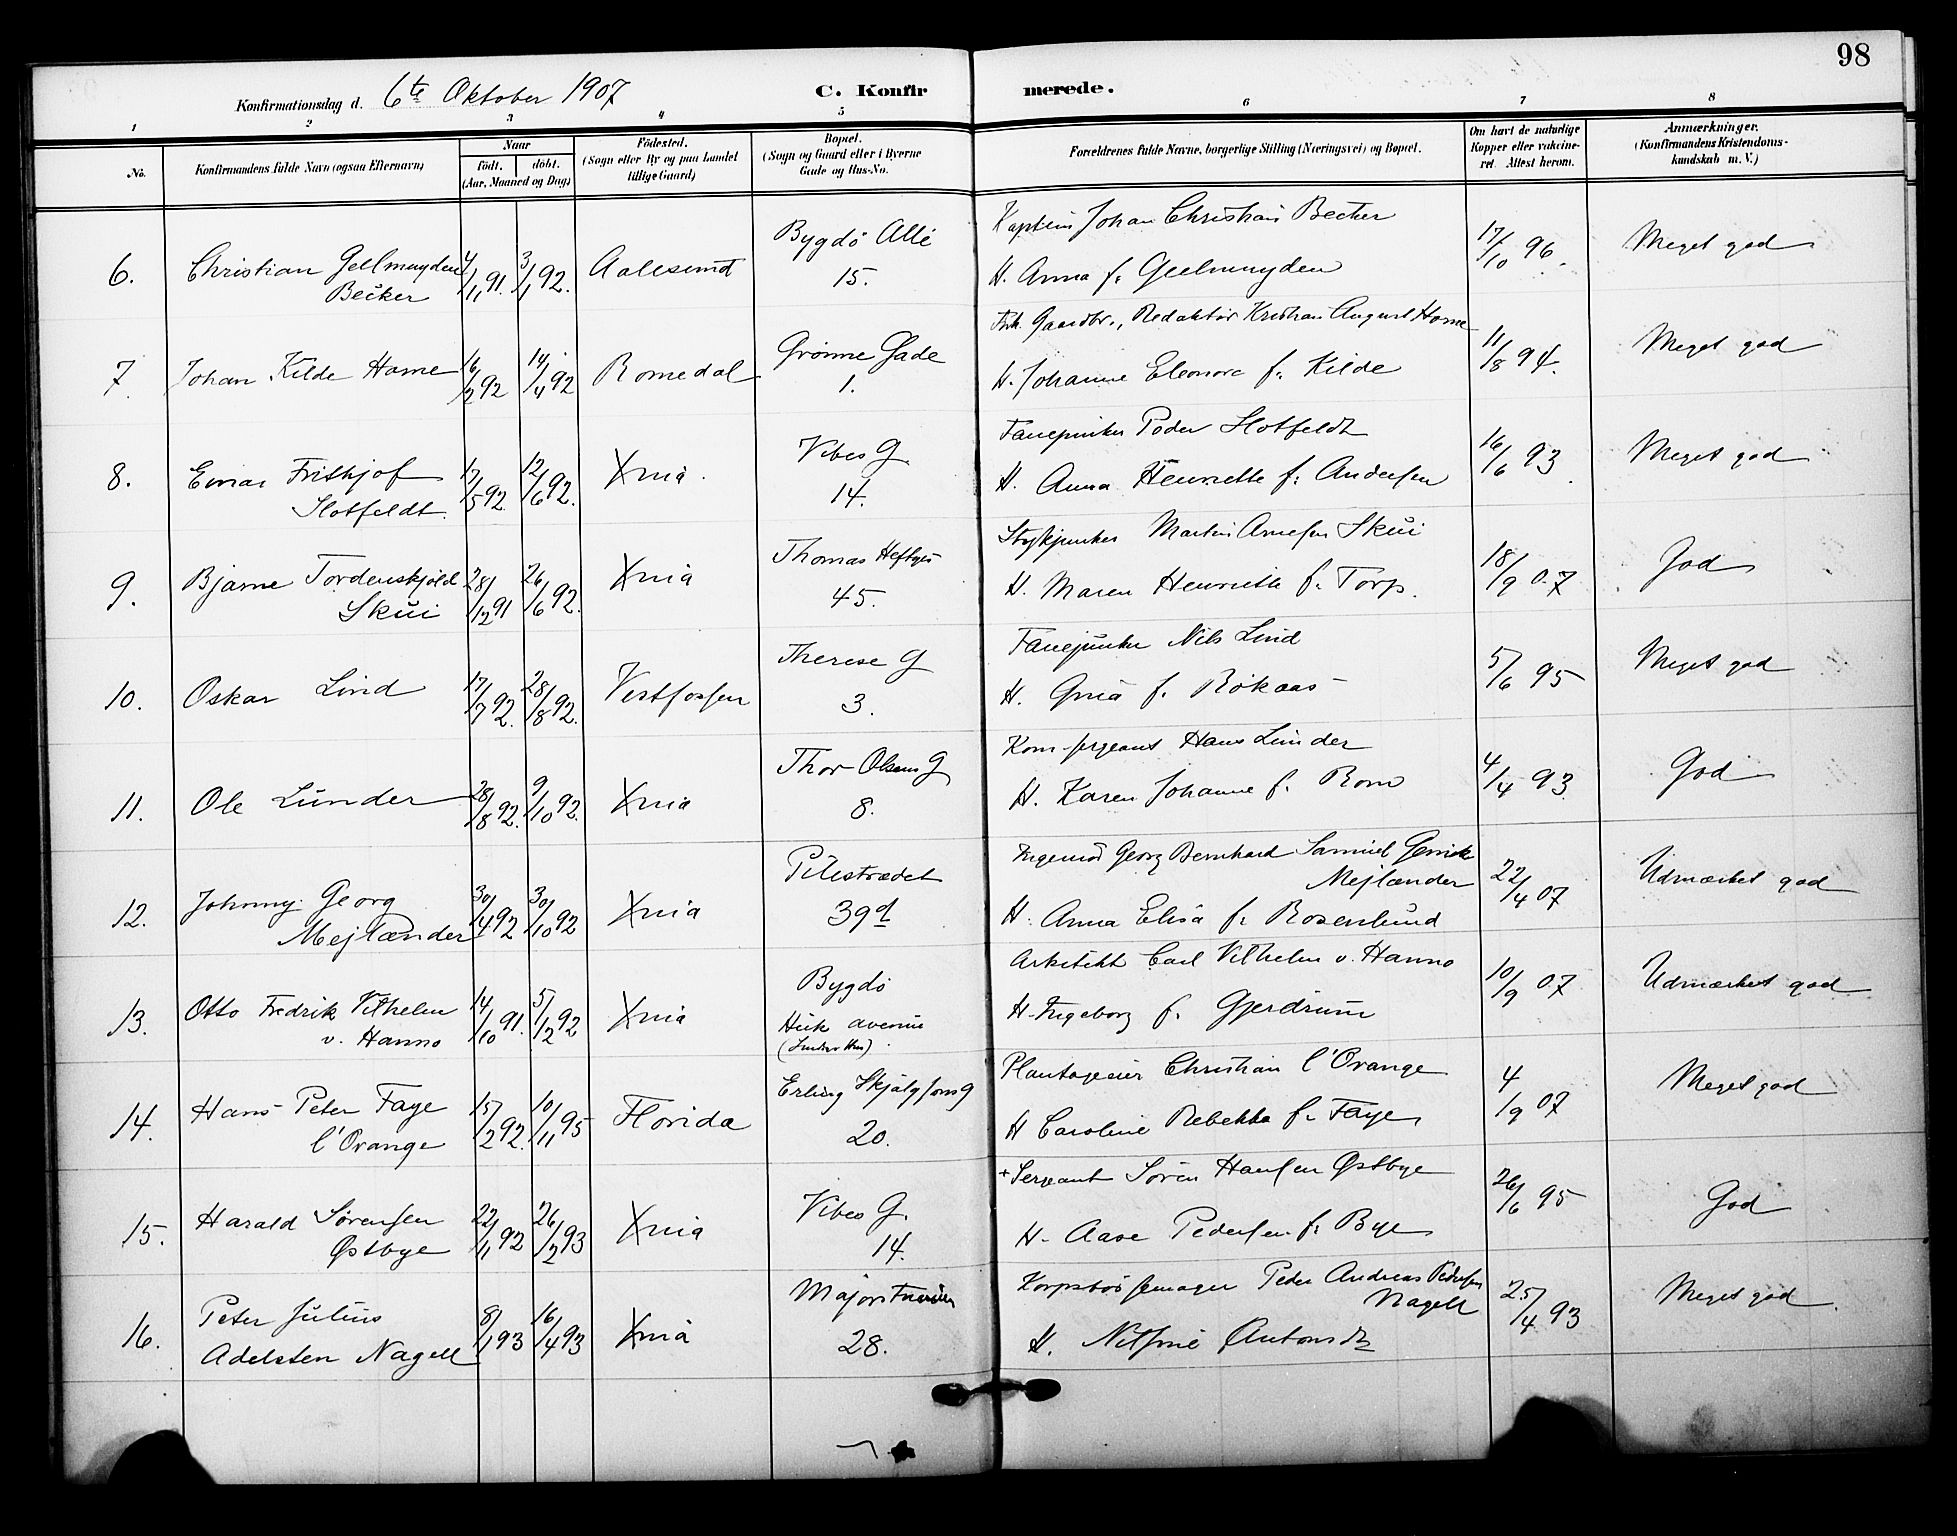 98
Konfirmationsdag d. 6te Oktober 1907 C. Konfirmerede.
1 2 3 4 5 6 7 8
No. Konfirmandens fulde Navn (ogsaa Efternavn) Naar født. døbt. (Aar, Maaned og Dag) Fødested. (Sogn eller By og paa Landet tillige Gaard) Bopæl. (Sogn og Gaard eller i Byerne Gade og Hus-No. Forældrenes fulde Navne, borgerlige Stilling (Næringsvei) og Bopæl. Om havt de naturlige Kopper eller vakcineret. Attest herom. Anmærkninger. (Konfirmandens Kristendomskundskab m. V.)
6. Christian Geelmuyden Becker 4/11 91. 3/1 92. Aalesund Bygdö Allé 15. Kaptein Johan Christian Becker
H. Anna f. Geelmuyden 17/10 96. Meget god
7. Johan Kilde Hame 16/2 92 14/4 92 Romedal Grönne Gade 1. Gaardbr., Redaktör Kristian August Hame
H. Johanne Eleonora f. Kilde 11/8 94. Meget god
8. Einar Frithjof Slotfeldt. 17/5 92. 12/6 92. Xnia. Vibes G 14. Fanejunker Peder Slotfeldt
H. Anna Henriette f. Andersen 16/6 93. Meget god
9. Bjarne Tordenskjöld Skui 28/12 91 26/6 92. Xnia Thomas Heftyes 45. Stykjunker Martin Arnesen Skui
H. Maren Henriette f. Torp. 18/9 07 God
10. Oskar Lind 17/7 92. 28/8 92. Vestfossen Therese G 3. Fanejunker Nils Lind
H. f. Rökaas 5/6 95 Meget god
11. Ole Lunder 28/8 92. 9/10 92. Xnia Thor Olsens G 8. Kom. sergeant Hans Lunder
H. Karen Johanne f. 4/4 93. God
12. Johnny Georg Mejlænder 30/4 92 30/10 92 Xnia Pilestrædet 39d Ingeniör Georg Bernhard Samuel Mejlænder
H. Anna Elisa f. Rosenlund 22/4 07 Udmærket god
13. Otto Fredrik Vilhelm v. Hanno 14/10 91. 5/12 92 Xnia Bygdö Huk avenue Arkitekt Carl Vilhelm v. Hanno
H. Ingeborg f. Gjerdrum 10/9 07 Udmærket god
14. Hans Peter Faye l'Orange 15/2 92. 10/11 95 Florida Erling Skjalgsons G 20. Plantageeier Christian l'Orange
H Caroline Rebekka f. Faye 4/9 07 Meget god
15. Harald Sørensen Østbye 22/11 92 26/2 93 Xnia Vibes G. 14. + Sergeant Sören Hansen Østbye
H. Aase Pedersen f. Bye 26/6 95 God
16. Peter Julius Adelsten Nagell 8/1 93 16/4 93 Xnia Majorstuveien 28. Korpsbössemager Peder Andreas Pedersen Nagell
H. Antonsdt 25/4 93 Meget god